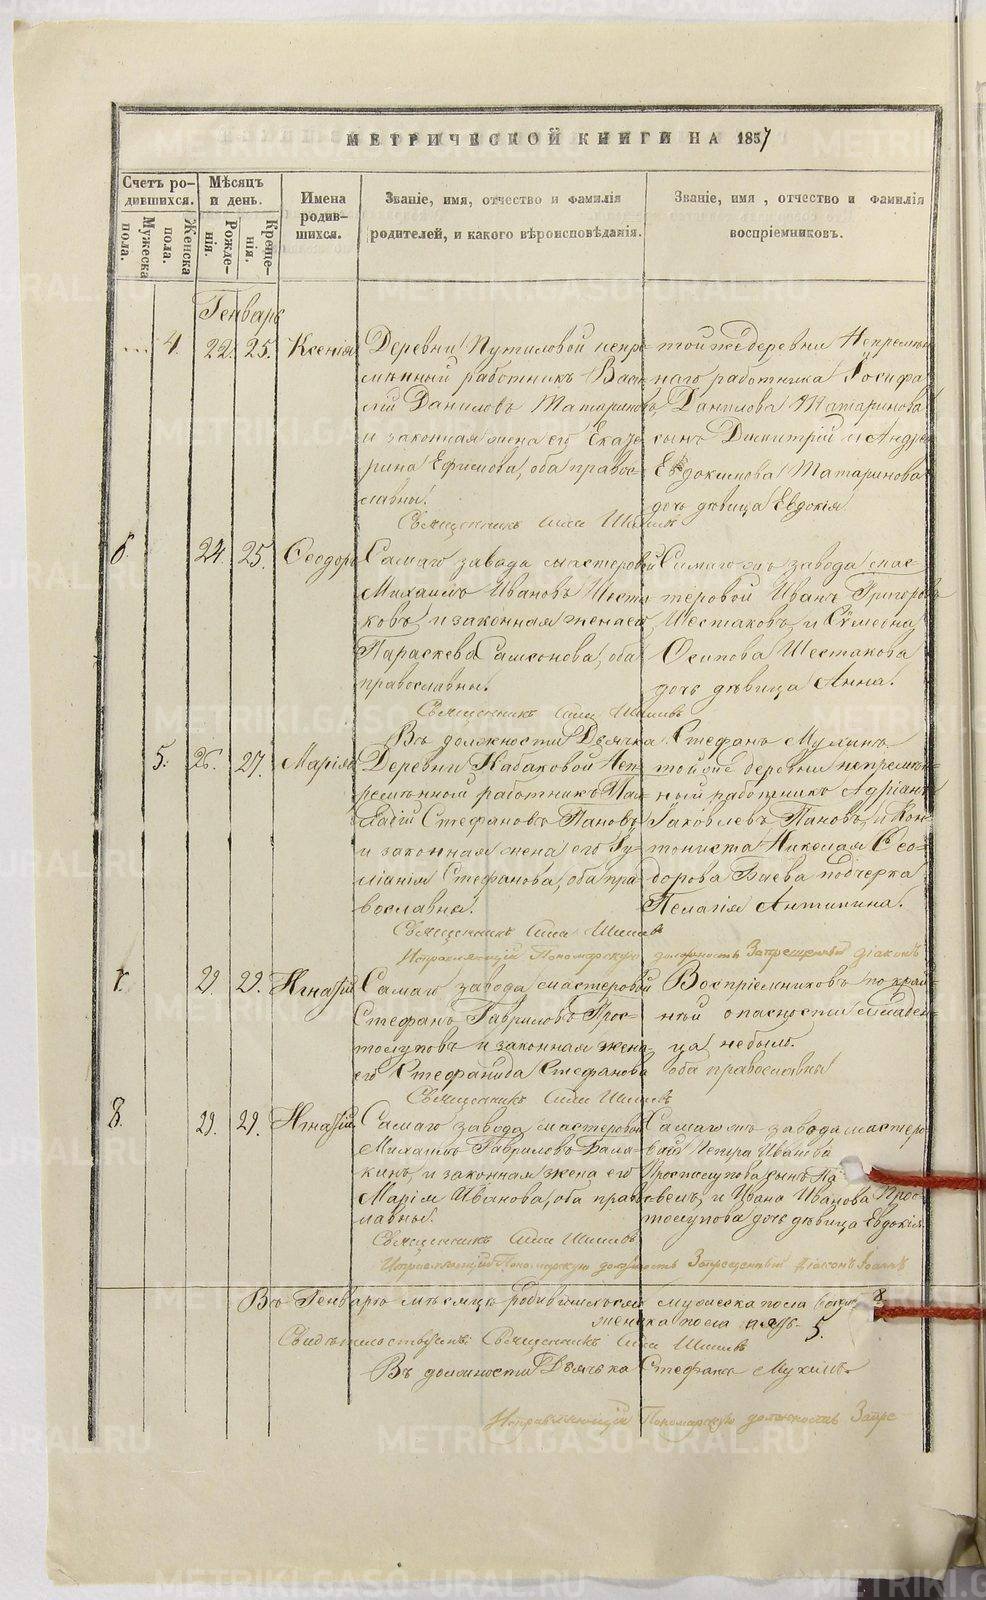 МЕТРИЧЕСКОЙ КНИГИ НА 1857
Счетъ родившихся.
Мужеска пола.
Женска пола.
Мѣсяцъ и день.
Рожденія.
Крещенія.
Имена родившихся.
Званіе, имя, отчество и фамилія
родителей, и какого вѣроисповѣданія.
Званіе, имя, отчество и фамилія
воспріемниковъ.
Генварь
4. 22. 25. Ксенія
Деревни Путиловой непре-
мѣнный работникъ Васи-
лій Даниловъ Татариновъ,
и законная жена его Екате-
рина Ефимова, оба право-
славны.
той же деревни Непремѣн-
наго работника Іосифа
Данилова Татаринова
сынъ Димитрій и Андрея
Евдокимова Татаринова
дочь дѣвица Евдокія
Священникъ Сила Шишевъ
6. 24. 25. Ѳеодоръ
Самаго завода мастеровой
Михаилъ Ивановъ Шеста-
ковъ, и законная жена его
Параскева Самсонова, оба
православны.
Самаго завода мас-
теровой Иванъ Григорьевъ
Шестаковъ, и Сѵмеона
Осипова Шестакова
дочь дѣвица Анна.
Священникъ Сила Шишевъ
Въ должности Дьячка Стефанъ Мухинъ.
5. 26. 27. Марія
Деревни Кабаковой Неп-
ремѣнной работникъ Пал-
ладій Стефановъ Пановъ
и законная жена его Іу-
ліанія Стефанова, оба пра-
вославны.
той же деревни непремѣн-
ный работникъ Адріанъ
Іаковлевъ Пановъ, и Кан-
тониста Николая Ѳео-
дорова Баева подчерка
Пелагія Антипина.
Священникъ Сила Шишевъ
Исправляющій Пономарскую должность Запрещенный діаконъ
7. 29. 29. Игнатій
Самаго завода мастеровой
Стефанъ Гавриловъ Прос-
толуповъ и законная жена
его Стефанида Стефанова
оба православны
Воспріемниковъ по край-
ней опасности младен-
ца небыло.
Священникъ Сила Шишевъ
8. 29. 29. Игнатій
Самаго завода мастеровой
Михаилъ Гавриловъ Бала-
кинъ, и законная жена его
Марія Иванова, оба право-
славны.
Самаго завода мастеро-
ваго Петра Иванова
Простолупова сынъ Па-
велъ, и Ивана Иванова Прос-
толупова дочь дѣвица Евдокія.
Священникъ Сила Шишевъ
Исправляющій Пономарскую должность Запрещенный діаконъ Іоаннъ
Въ Генварѣ мѣсяцѣ родившихся мужеска пола восемь 8.
женска пола пять 5.
Священникъ Сила Шишевъ
Въ должности Дьячка Стефанъ Мухинъ.
Исправляющій Пономарскую должность Запре-
METRIKI.GASO-URAL.RU